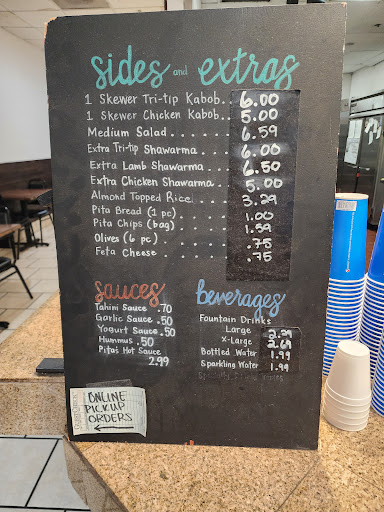 sides and extras
1 Skewer Tri-tip Kabob.. 6.00
1 Skewer Chicken Kabob.. 5.00
Medium Salad...... 6.59
Extra Tri-tip Shawarma... 6.00
Extra Lamb Shawarma.... 6.50
Extra Chicken Shawarma... 5.00
Almond Topped Rice.... 3.29
Pita Bread (1 pc)..... 1.00
Pita Chips (bag)..... 1.59
Olives (6 pc)...... .75
Feta Cheese...... .75
sauces
Tahini Sauce .70
Garlic Sauce .50
Yogurt Sauce .50
Hummus .50
Pita's Hot Sauce
2.99
beverages
Fountain Drinks
Large
X-Large 2.69
Bottled Water 1.99
Sparkling Water 1.99
ONLINE
PICKUP
ORDERS